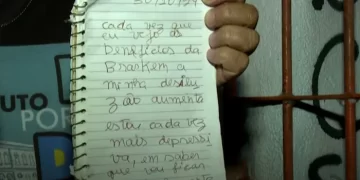 30/10/24
cada vez que
eu vejo os
benefícios da
Braskem a
minha
zão aumenta
está cada vez
mais depressi
va, em saber
que vou ficar
UTO